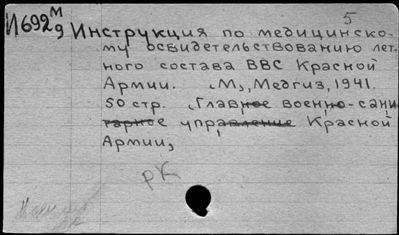 5
И692 М/9 Инструкция по медицинско-
му освидетельствованию лет-
ного состава ВВС Красной
Армии. М., Медгиз, 1941.
50 стр. „Главное военно-сани
тарное управление Красной
Армии„
рК